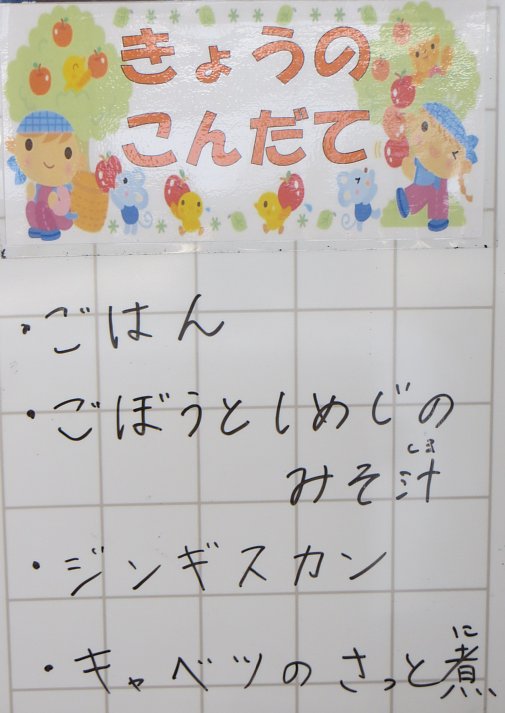 きょうの
こんだて
・ごはん
・ごぼうとしめじの
みそ汁
しる
・ジンギスカン
・キャベツのさっと煮
に